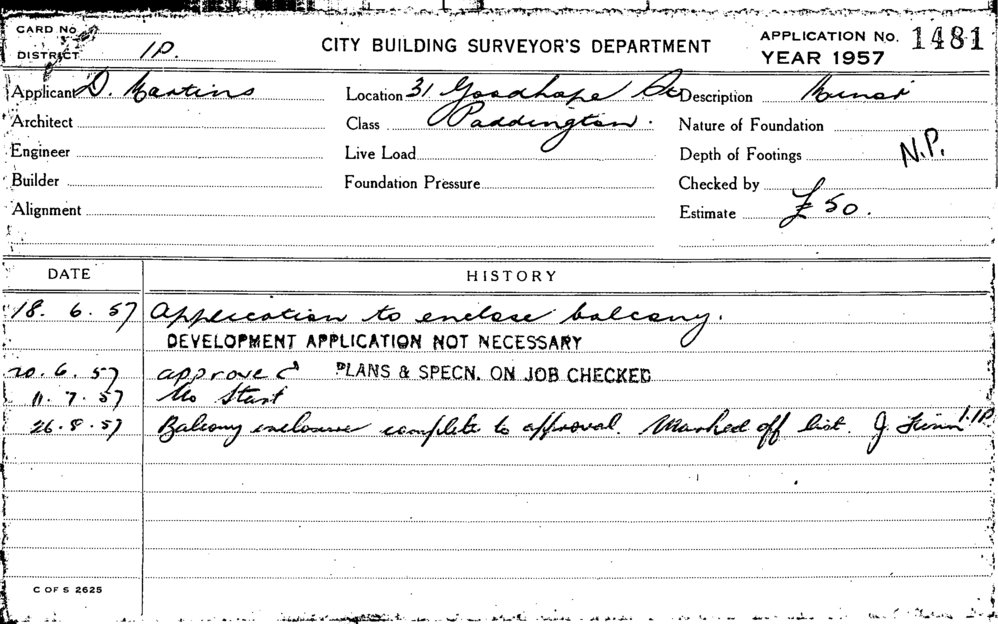 CARD No.
DISTRICT 1P.
CITY BUILDING SURVEYOR'S DEPARTMENT
APPLICATION No. 1481
YEAR 1957
Applicant D. Martins
Location 31 Goodhope St
Description Minor
Architect
Class Paddington.
Nature of Foundation
Engineer
Live Load
Depth of Footings N.P.
Builder
Foundation Pressure
Checked by
Alignment
Estimate £50.
DATE HISTORY
18. 6. 57 Application to enclose balcony.
DEVELOPMENT APPLICATION NOT NECESSARY
20. 6. 57 approved PLANS & SPECN. ON JOB CHECKED
11. 7. 57 No Start
26. 8. 57 Balcony enclosure complete to approval. Marked off list. J. 1P
C OF S 2625